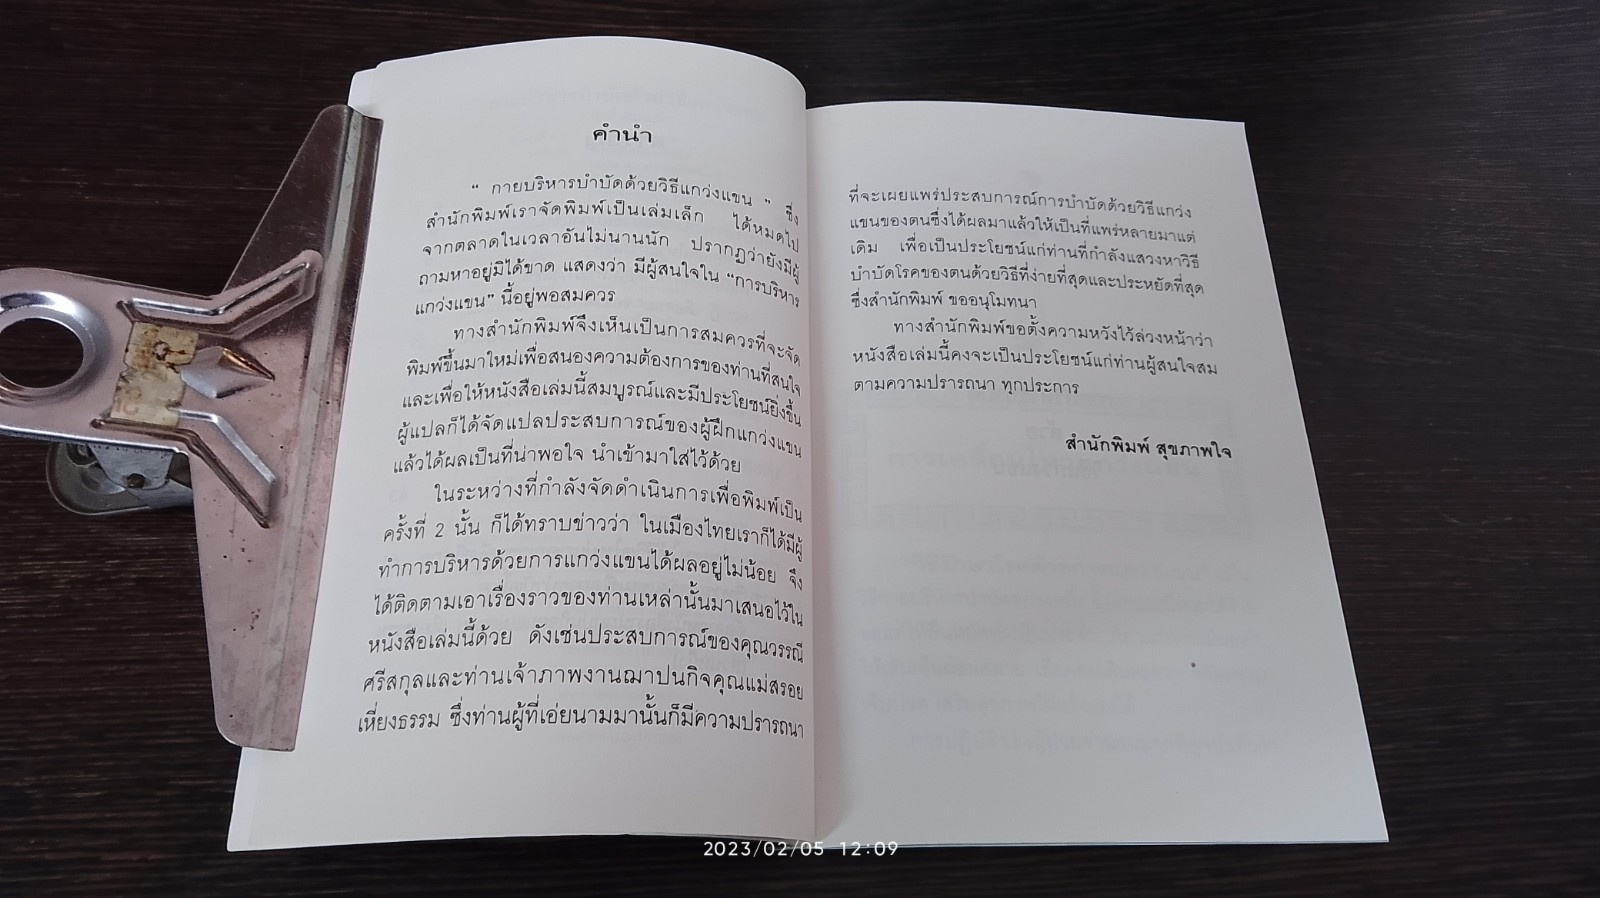 คำนำ
“ กายบริหารบำบัดด้วยวิธีแกว่งแขน ” ซึ่ง
สำนักพิมพ์เราจัดพิมพ์เป็นเล่มเล็ก ได้หมดไป
จากตลาดในเวลาอันไม่นานนัก ปรากฏว่ายังมีผู้
ถามหาอยู่มิได้ขาด แสดงว่า มีผู้สนใจใน “การบริหาร
แกว่งแขน” นี้อยู่พอสมควร
ทางสำนักพิมพ์จึงเห็นเป็นการสมควรที่จะจัด
พิมพ์ขึ้นมาใหม่เพื่อสนองความต้องการของท่านที่สนใจ
และเพื่อให้หนังสือเล่มนี้สมบูรณ์และมีประโยชน์ยิ่งขึ้น
ผู้แปลก็ได้จัดแปลประสบการณ์ของผู้ฝึกแกว่งแขน
แล้วได้ผลเป็นที่น่าพอใจ นำเข้ามาใส่ไว้ด้วย
ในระหว่างที่กำลังจัดดำเนินการเพื่อพิมพ์เป็น
ครั้งที่ 2 นั้น ก็ได้ทราบข่าวว่า ในเมืองไทยเราก็ได้มีผู้
ทำการบริหารด้วยการแกว่งแขนได้ผลอยู่ไม่น้อย จึง
ได้ติดตามเอาเรื่องราวของท่านเหล่านั้นมาเสนอไว้ใน
หนังสือเล่มนี้ด้วย ดังเช่นประสบการณ์ของคุณวรรณี
ศรีสกุลและท่านเจ้าภาพงานฌาปนกิจคุณแม่สรอย
เหี่ยงธรรม ซึ่งท่านผู้ที่เอ่ยนามมานั้นก็มีความปรารถนา
ที่จะเผยแพร่ประสบการณ์การบำบัดด้วยวิธีแกว่ง
แขนของตนซึ่งได้ผลมาแล้วให้เป็นที่แพร่หลายมาแต่
เดิม เพื่อเป็นประโยชน์แก่ท่านที่กำลังแสวงหาวิธี
บำบัดโรคของตนด้วยวิธีที่ง่ายที่สุดและประหยัดที่สุด
ซึ่งสำนักพิมพ์ ขออนุโมทนา
ทางสำนักพิมพ์ขอตั้งความหวังไว้ล่วงหน้าว่า
หนังสือเล่มนี้คงจะเป็นประโยชน์แก่ท่านผู้สนใจสม
ตามความปรารถนา ทุกประการ
สำนักพิมพ์ สุขภาพใจ
2023/02/05 12:09